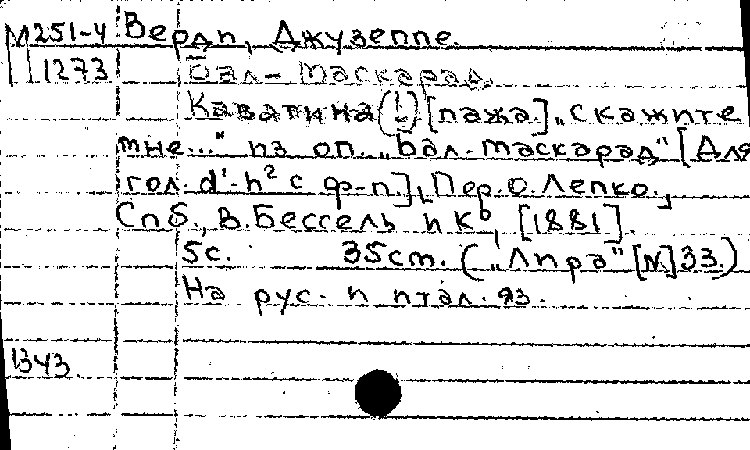 М251-4 Верди, Джузеппе.
1273 Бал-маскарад.
Каватина (!) [пажа] „Скажите
мне..." из оп. „Бал-маскарад" [Для
гол. d¹-h² с ф-п.], [Пер. О. Лепко.,]
Спб., В. Бессель и Кº, [1881].
5с. 35cm. („Лира" [N] 33.)
На рус. и итал. яз.
1343.